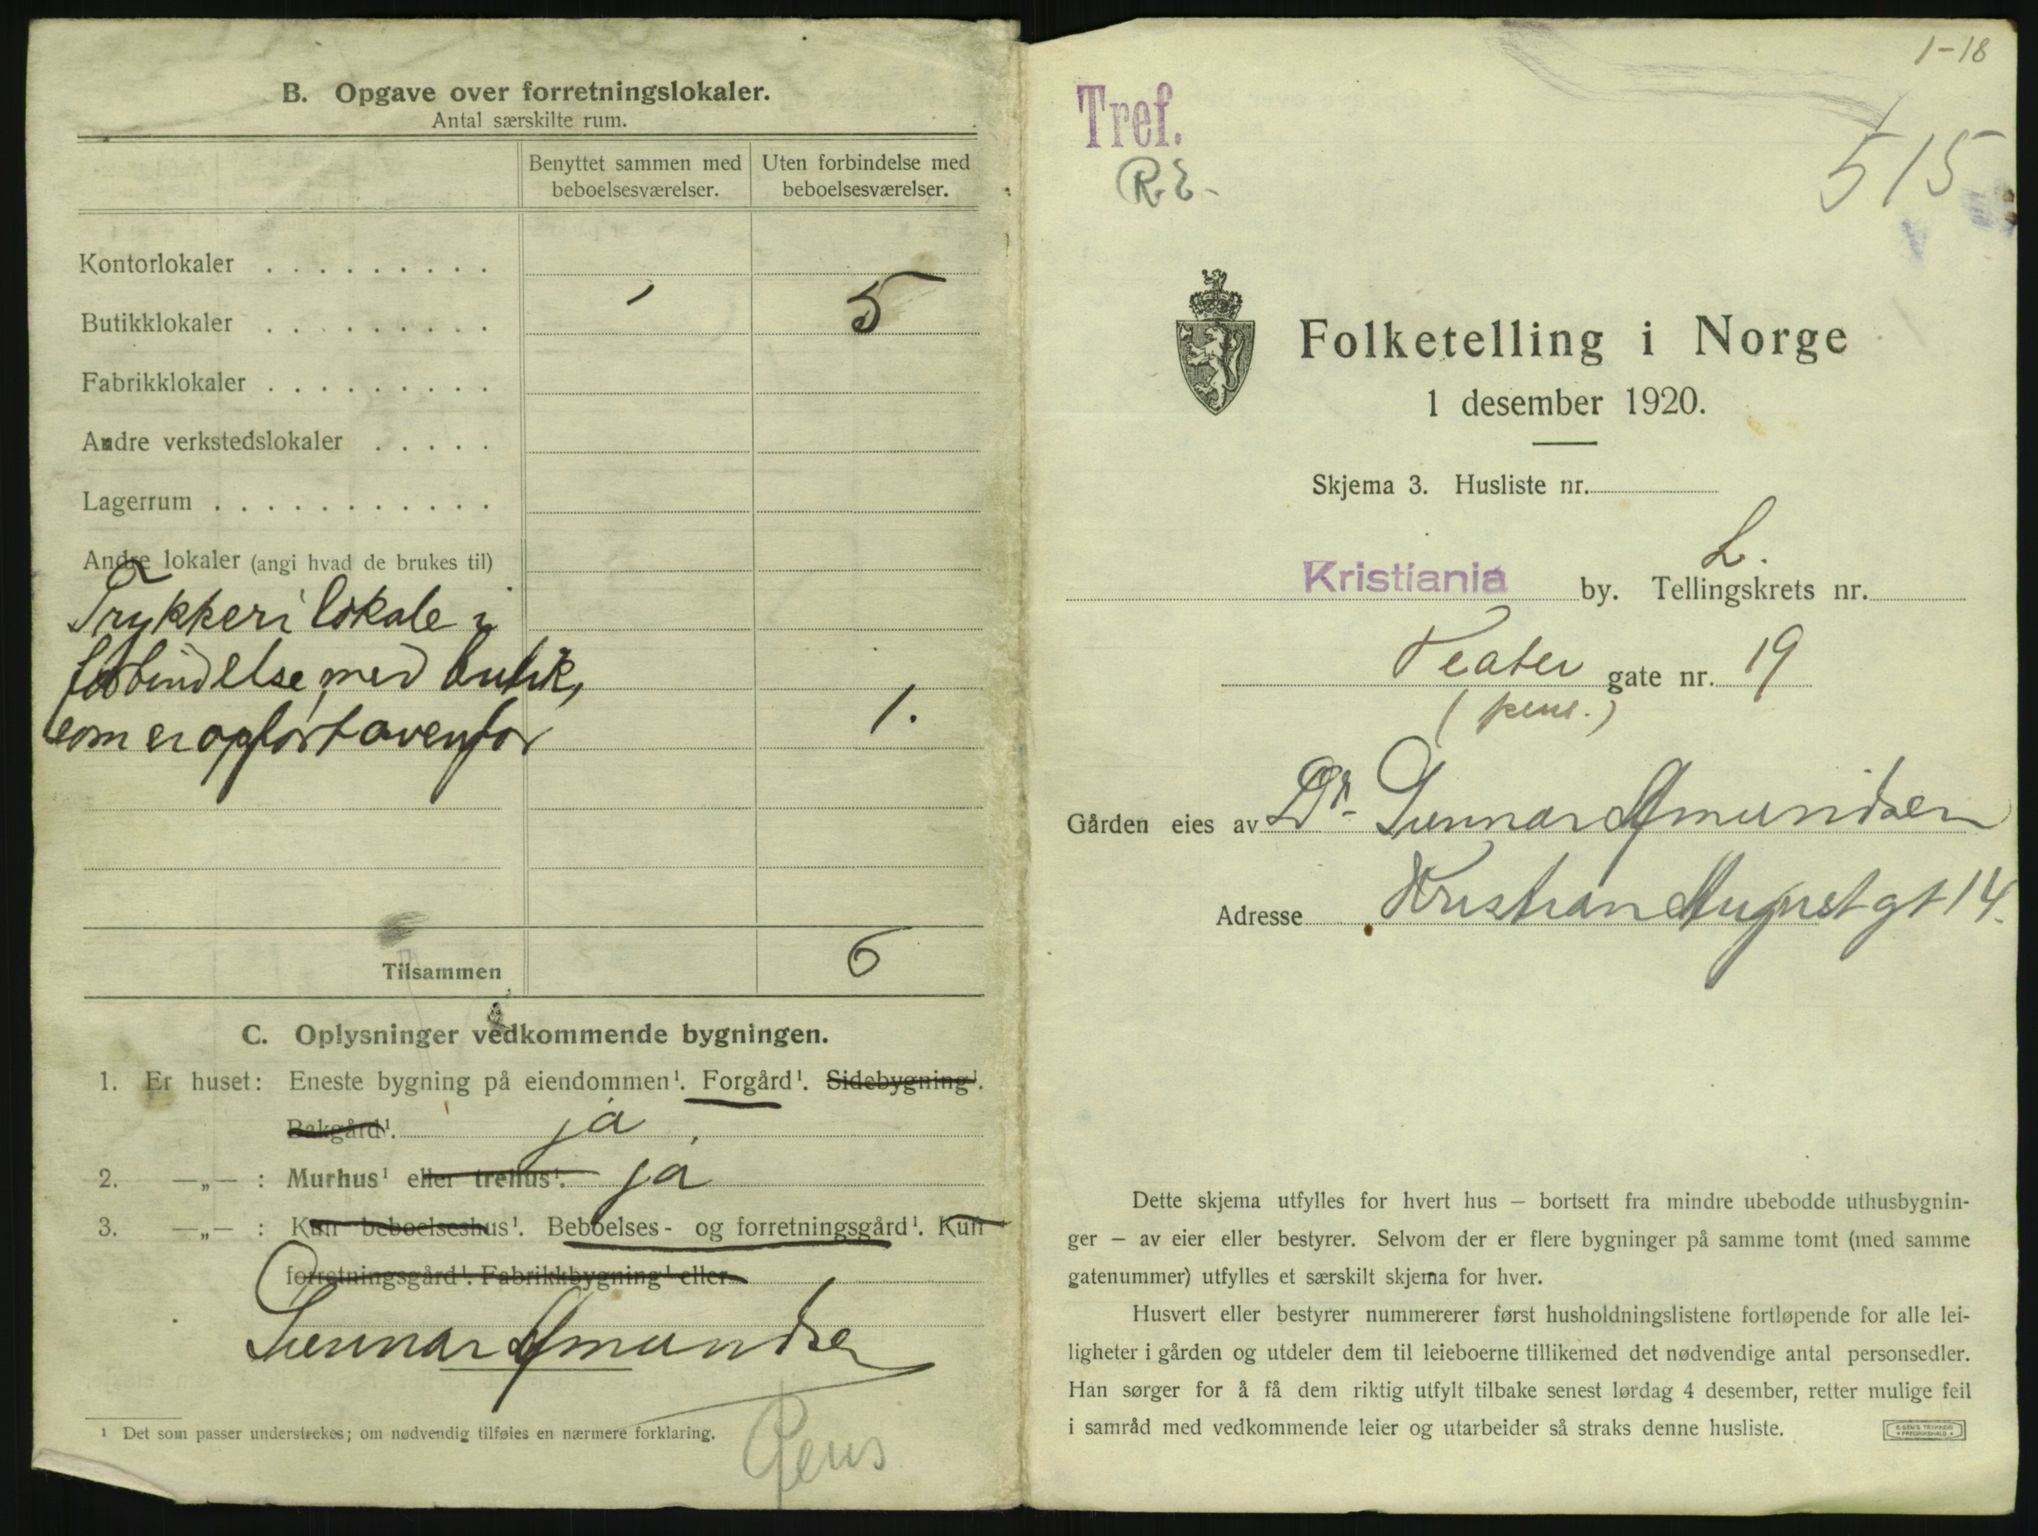 B. Opgave over forretningslokaler.
Antal særskilte rum.
Benyttet sammen med beboelsesværelser.
Uten forbindelse med beboelsesværelser.
Kontorlokaler . . . . . . . . .
Butikklokaler . . . . . . . . . 5
Fabrikklokaler . . . . . . . . .
Andre verkstedslokaler . . . . .
Lagerrum . . . . . . . . . . .
Andre lokaler (angi hvad de brukes til)
Trykkeri lokale i
forbindelse med butik,
som er opført ovenfor 1.
Tilsammen 6
C. Oplysninger vedkommende bygningen.
1. Er huset: Eneste bygning på eiendommen¹. Forgård¹. Sidebygning¹.
Bakgård¹. ja
2. —„— : Murhus¹ eller trehus¹. ja
3. —„— : Kun beboelseshus¹. Beboelses- og forretningsgård¹. Kun
forretningsgård¹. Fabrikkbygning¹ eller
Gunnar Amundsen
¹ Det som passer understrekes; om nødvendig tilføies en nærmere forklaring.
1-18
Tref.
R.E.
515
Folketelling i Norge
1 desember 1920.
Skjema 3. Husliste nr.
Kristiania by. Tellingskrets nr.
L.
Teater gate nr. 19
(pens.)
Gården eies av Dr. Gunnar Amundsen
Adresse Kristian August gt 14.
Dette skjema utfylles for hvert hus — bortsett fra mindre ubebodde uthusbygnin-
ger — av eier eller bestyrer. Selvom der er flere bygninger på samme tomt (med samme
gatenummer) utfylles et særskilt skjema for hver.
Husvert eller bestyrer nummererer først husholdningslistene fortløpende for alle lei-
ligheter i gården og utdeler dem til leieboerne tillikemed det nødvendige antal personsedler.
Han sørger for å få dem riktig utfylt tilbake senest lørdag 4 desember, retter mulige feil
i samråd med vedkommende leier og utarbeider så straks denne husliste.